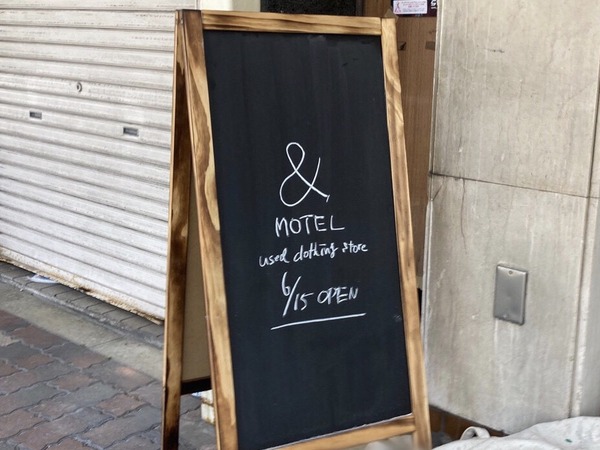 &
MOTEL
used clothing store
6/15 OPEN